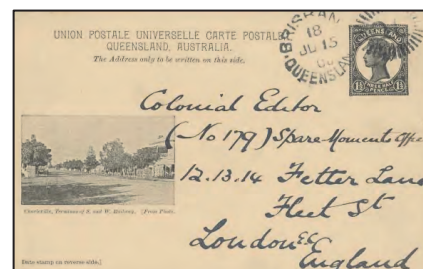 UNION POSTALE UNIVERSELLE CARTE POSTALE
QUEENSLAND, AUSTRALIA.
The Address only to be written on this side.
BRISBAN
18
JU 15
QUEENSLAN
QUEENSLAND
1½ THREE HALF PENCE 1½
Colonial Editor
(No 179) Spare Moments Offi
12.13.14 Fetter Lane
Fleet St
London E.C
England
Charleville, Terminus of S. and W. Railway. [From Photo.
Date stamp on reverse side.]